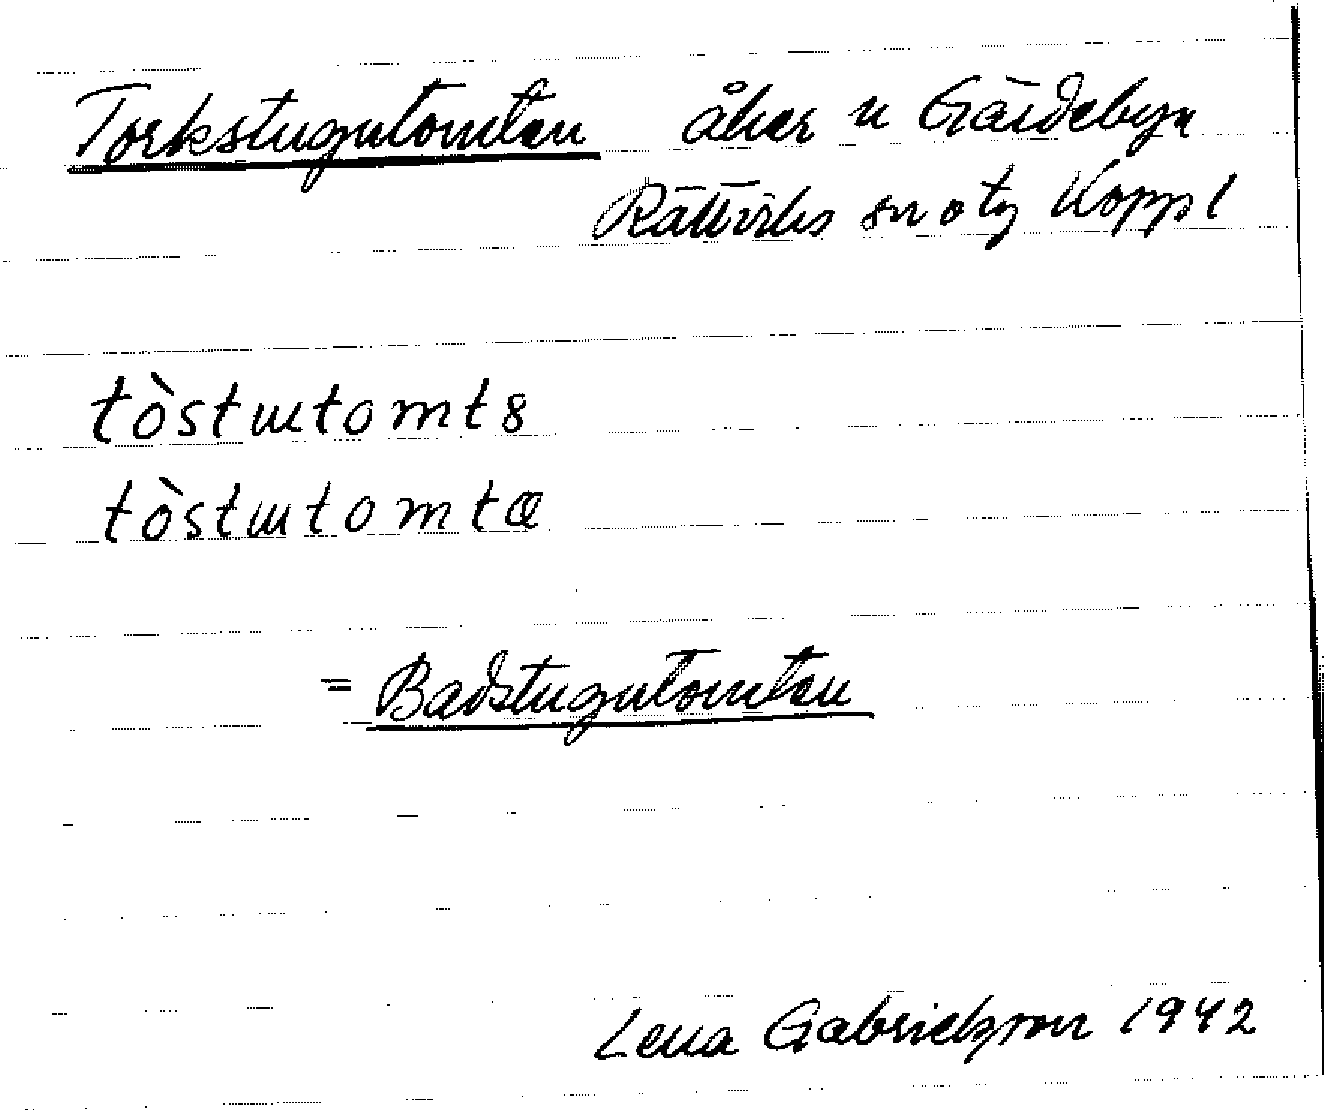 Torkstugutomten åker n Gärdebyn
Rättviks sn o tg Koppl
tòstɯtomtɞ
tòstɯtomtɶ
= Badstugutomten
Lena Gabrielsson 1942